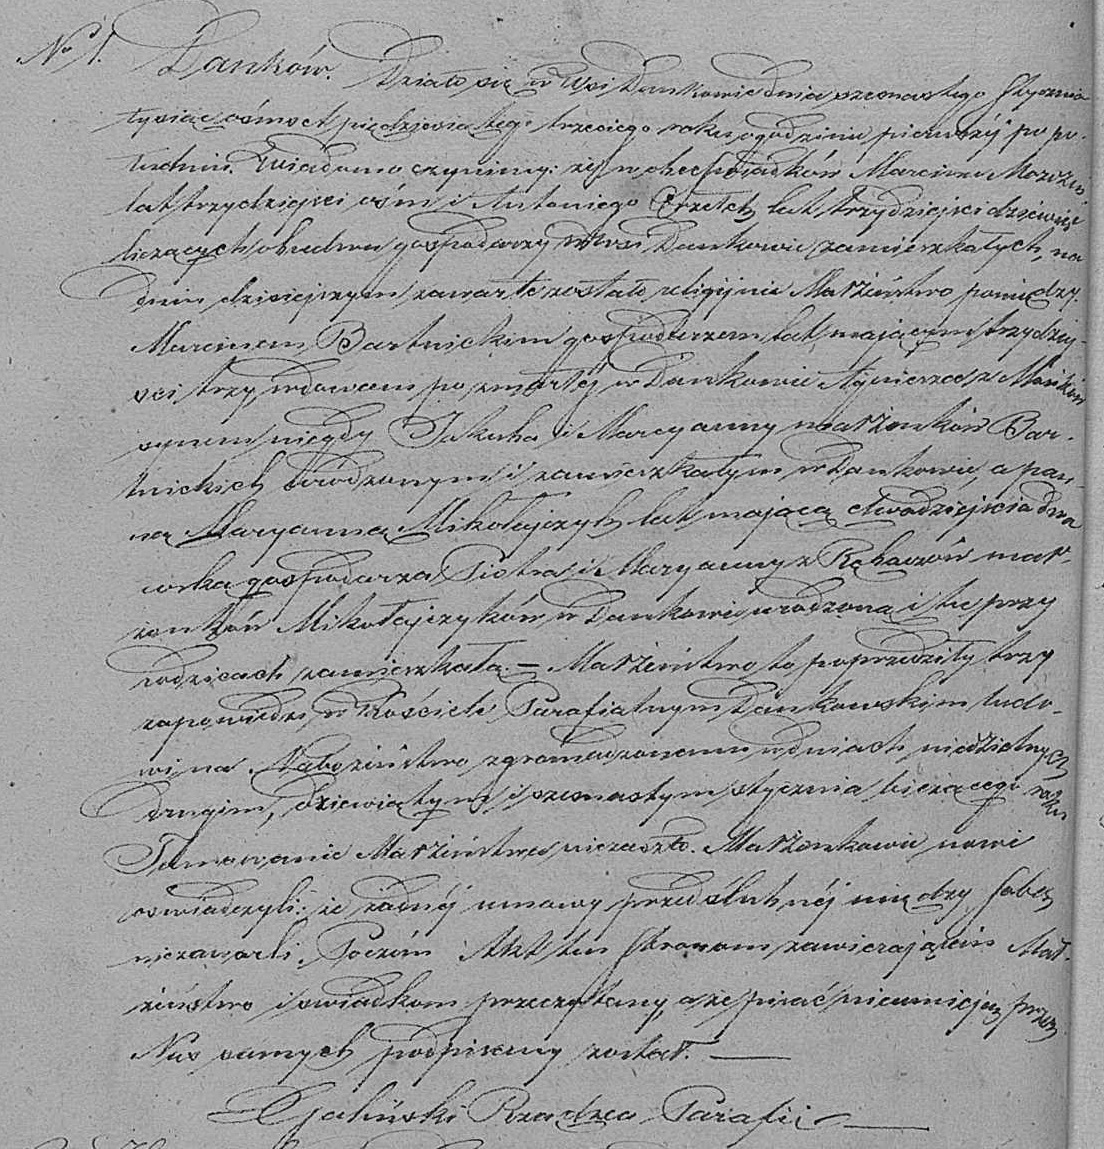 No 1. Danków. Działo się w Wsi Dankowie dnia szesnastego Stycznia
tysiąc ośmset pięćdziesiątego trzeciego roku o godzinie pierwszéj po po-
łudniu. Wiadomo czyniemy: że w obec świadków Marcina
lat trzydzieści ośm i Antoniego lat trzydzieści dziewięć
liczących obudwu gospodarzy w Wsi Dankowie zamieszkałych, na
dniu dzisiejszym zawarte zostało religijnie Małżeństwo pomiędzy
Marcinem Bartnickim gospodarzem lat mającym trzydzie-
ści trzy wdowcem po zmarłéj w Dankowie Agnieszce z
synem niegdy Jakuba i Maryanny małżonków Bar-
tnickich urodzonym i zamieszkałym w Dankowie, a pan-
ną Maryanną Mikołajczyk lat mającą dwadzieścia dwa
córką gospodarza Piotra i Maryanny z małż-
onków Mikołajczyków w Dankowie urodzoną i tu przy
rodzicach zamieszkałą. — Małżeństwo to poprzedziły trzy
zapowiedzi w Kościele Parafialnym Dankowskim ludo-
wi na Nabożeństwo zgromadzonemu w dniach niedzielnych
drugim, dziewiątym i szesnastym stycznia bieżącego roku
Tamowanie Małżeństwa niezaszło. Małżonkowie nowi
oświadczyli: że żadnéj umowy przedślubnéj między sobą
niezawarli. Poczém Akt ten stronom zawierającém Mał-
żeństwo i świadkom przeczytany, a że pisać nieumieją przez
Nas samych podpisany został. —
Rządzca Parafii —